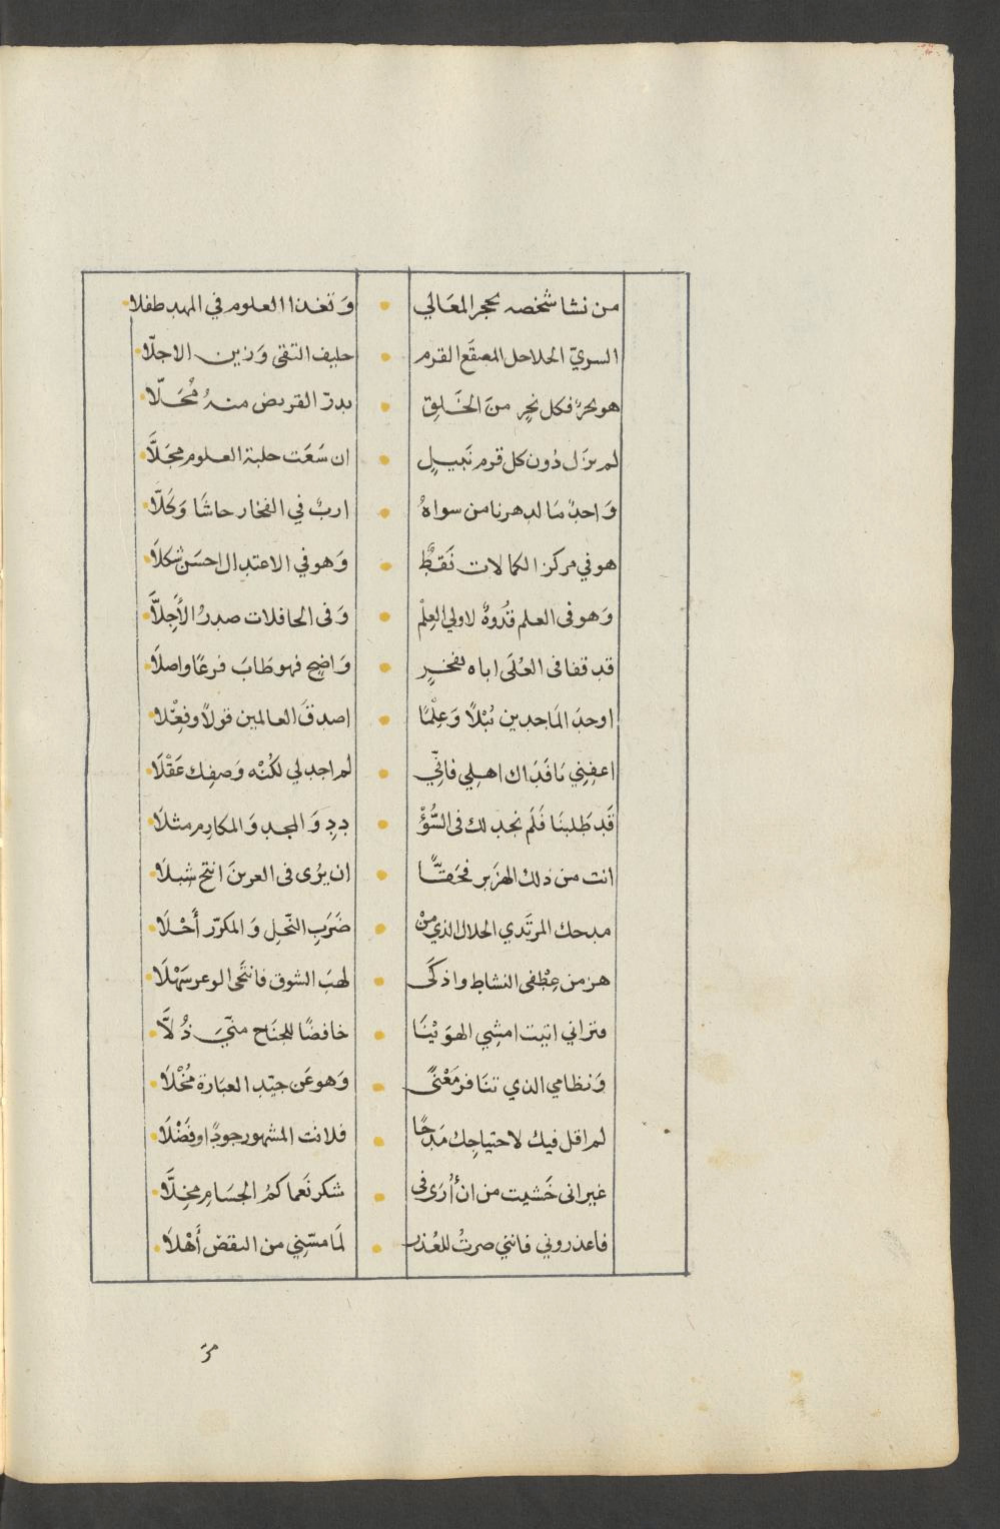 من نشا شخصه بحجر المعَالي • وَ تغذا العلوم في المهد طفلا
السريّ الحلاحل المصقَع القرم • حليف التقى وَزين الاجلّا
هو بحرٌ فكل نحرٍ منَ الخَلِق • بدرّ القريض منهُ مُحَلّا
لم يزَل دُون كل قرم نَبيلٍ • ان سَعَت حلبة العلوم مجَلَّا
وَاحدٌ مَا لدهرنا من سواهُ • اربٌ في الفخار حاشَا وَكَلّا
هو في مركز الكمالات نَقطٌ • وَهو في الاعتدال احسَن شكلَا
وَهو فى العلم قُدوةٌ لاولي العِلْم • وَفى الحافلات صدرُ الأَجِلَّا
قد قفا فى العُلَى اباه بفخرٍ • وَاضِحٍ فهو طَابَ فرعًا واصلَا
اوحدَ المَاجدين نُبْلاً وَعِلْمًا • اصدقَ العالمين قولاً وفِعْلا
اعفِنِي مَا فَدَاك اهلِي فانِّي • لم اجد لي لكُنْه وَصفِك عَقْلَا
قَد طَلبنَا فَلَم نجد لك فى السُّؤْ • دِدِ وَالمجد وَالمكارِم مثلَا
انت من ذلك الهزَبر فحَقًّا • ان يرُى فى العرينَ انتج شبلَا
مدحك المرتَدي الحلال الذي منْ • ضَرَبِ النّحل وَالمكرّر أَحْلَا
هز من عِطْفى النشاط واذكَى • لهبَ الشوق فانتحَى الوعر سَهْلَا
فتراني اتيت امشِي الهوَيْنَا • خافضًا للجنَاح منّيَ ذُلَّا
وَنظامي الذي تنَافر مَعْنًى • وَهو عَن جيّد العبَارة مُخْلَا
لم اقل فيك لاحتياجِك مَدحًا • فلانت المشهور جودًا وفَضْلَا
غير انى خَشيت من ان أُرَى فى • شكر نَعماكمُ الجسَامِ مخِلَّا
فاعذروني فانني صرتُ للعُذر • لمَا مسّنِي من النقض أَهْلَا